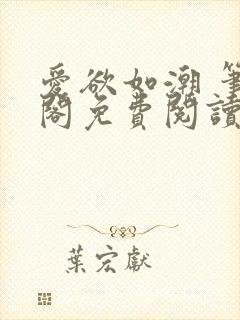 愛欲如潮 筆
閣免費閱讀
葉宏獻